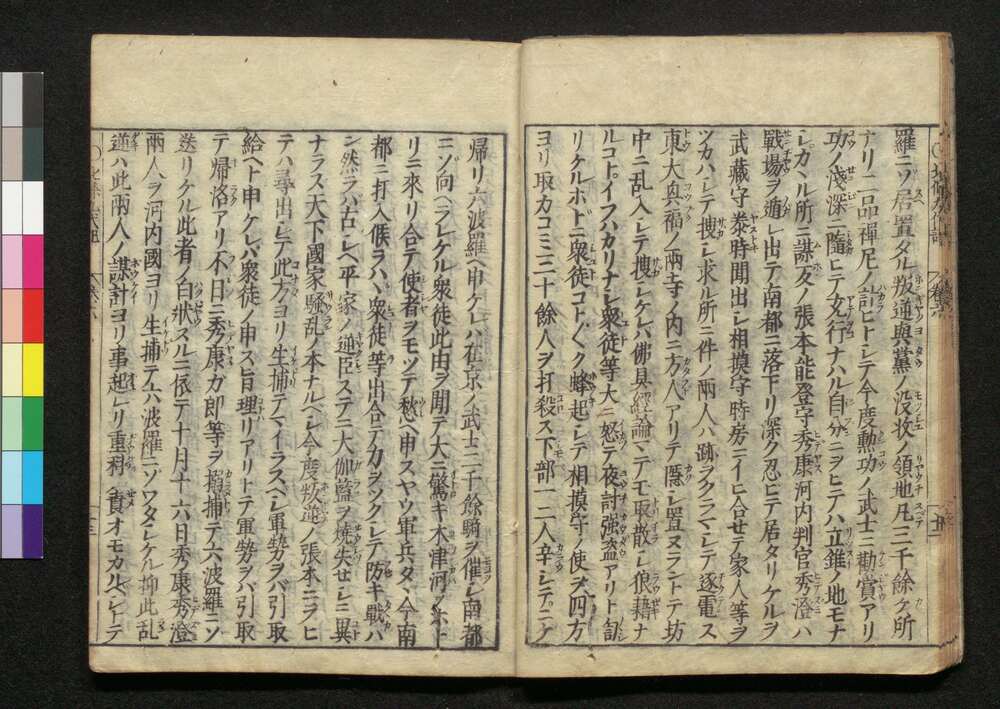 羅ニソ居置タル叛逆與黨ノ没收ノ領地凡三千餘ケ所
ナリ二品禪尼ノ計ヒトシテ今度勲功ノ武士ニ勸賞アリ
功ノ淺深ニ隨ヒテ充行ナハル自分ニヲヒテハ立錐ノ地モナ
シカヽル所ニ謀友ノ張本能登守秀康河内判官秀澄ハ
戰場ヲ遁レ出テ南都ニ落下リ深ク忍ヒテ居タリケルヲ
武藏守泰時聞出シ相摸守時房ニイヒ合セテ家人等ヲ
ツカハシテ搜シ求ル所ニ件ノ兩人ハ跡ヲクラマシテ逐電ス
東大興福ノ兩寺ノ内ニ方人アリテ隱シ置ヌラントテ坊
中ニ乱入シテ搜シケレバ佛具經論マテモ取散シ狼藉ナ
ルコトイフハカリナシ衆徒等大ニ怒テ夜討強盗アリト訇
リケルホドニ衆徒コト〴〵ク蜂起シテ相摸守ノ使ヲ四方
ヨリ取カコミ三十餘人ヲ打殺ス下部一二人辛シテニケ
帰リ六波羅ヘ申ケレハ在京ノ武士二千餘騎ヲ催シ南都
ニソ向ヘラレケル衆徒此由ヲ聞テ大ニ驚キ木津河ノ
リニ來リ合テ使者ヲモツテ愁ヘ申スヤウ軍兵タヽ今南
都ニ打入候ラハヽ衆徒等出合テカヲツクシテ防キ戰ハ
ン然ラハ古シヘ平家ノ逆臣ステニ大伽藍ヲ燒失セシニ異
ナラス天下國家騒乱ノ本ナルヘシ今度叛逆ノ張本ニヲヒ
テハ尋出シテ此方ヨリ生捕テマイラスヘシ軍勢ヲバ引取
給ヘト申ケレバ衆徒ノ申ス旨理リアリトテ軍勢ヲバ引取
テ帰洛アリ不日ニ秀康ガ即等ヲ搦捕テ六波羅ニソ
送リケル此者ノ白狀スルニ依テ十月十六日秀康秀澄
兩人ヲ河内國ヨリ生捕テ六波羅ニソワタシケル抑此乱
逆ハ此兩人ノ謀計ヨリ事起レリ重科ノ責オモカルヘシトテ